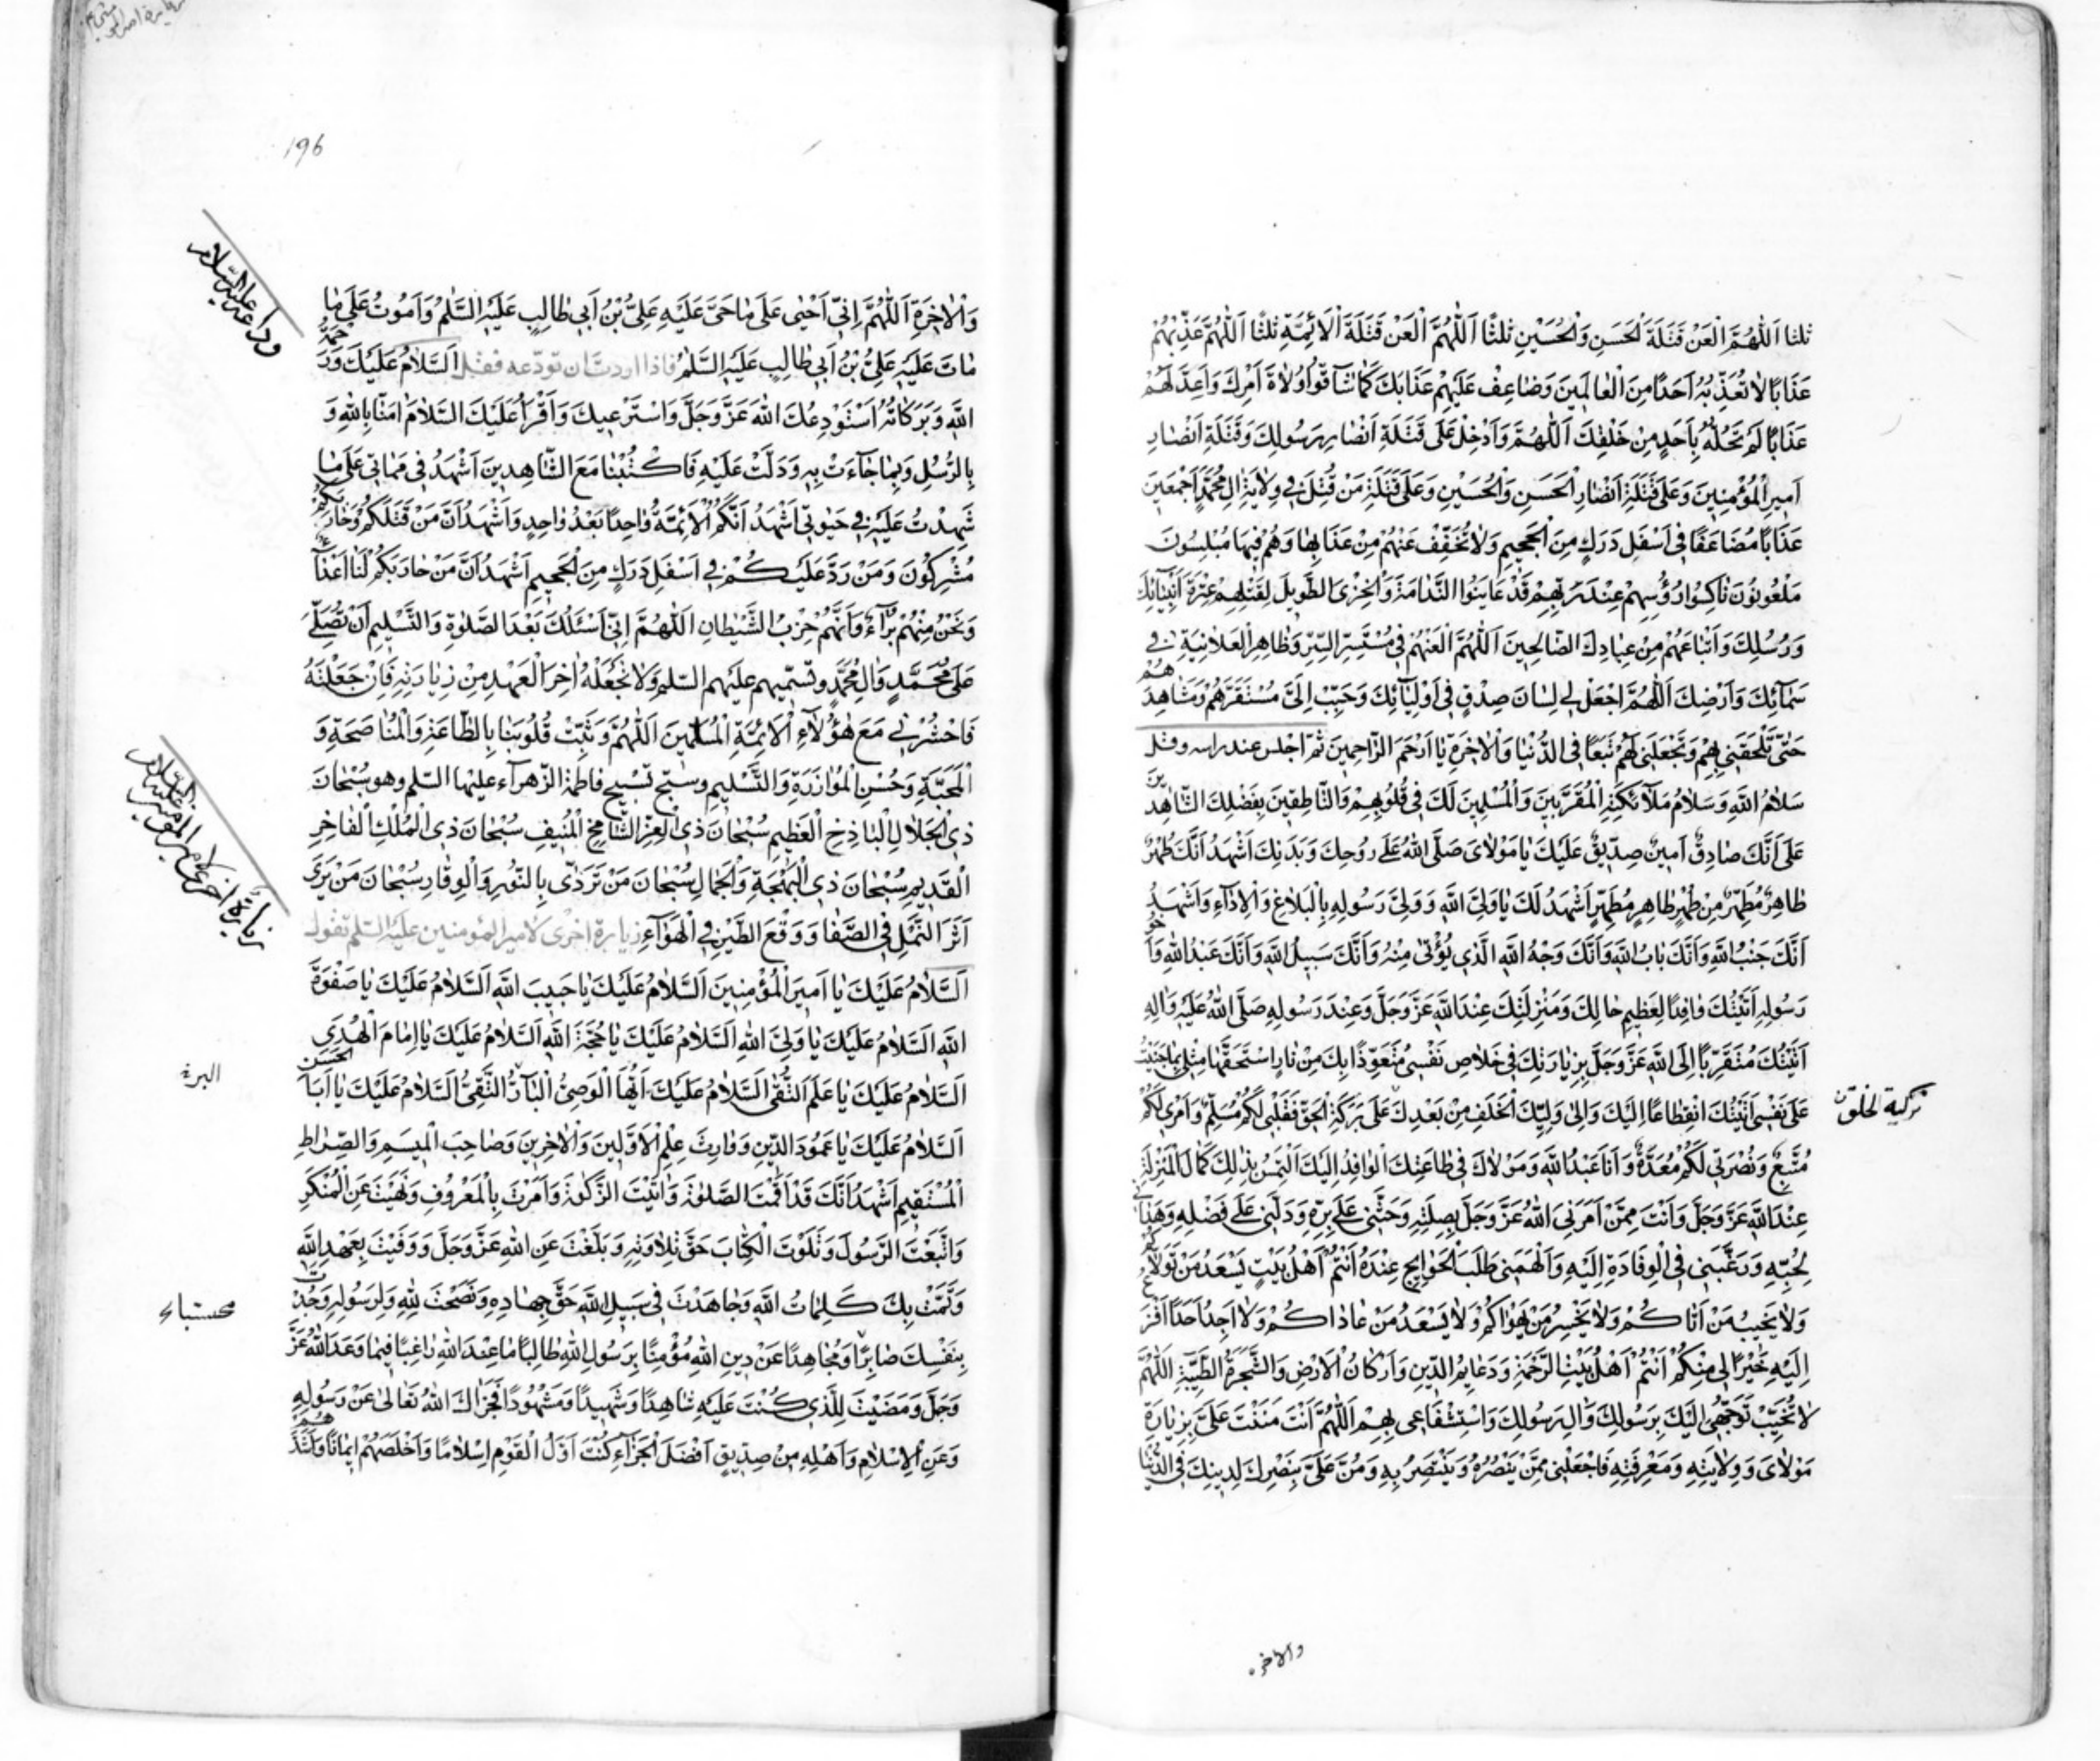 ثلثا اَللّٰهُمَّ الْعَنْ قَتَلَةَ الْحَسَنِ وَالْحُسَيْنِ ثلثًا اَللّٰهُمَّ الْعَنْ قَتَلَةَ الْاَئِمَّةِ ثلثًا اَللّٰهُمَّ عَذِّبْهُمْ
عَذَابًا لَا تُعَذِّبُهُ اَحَدًا مِنَ الْعَالَمِينَ وَضَاعِفْ عَلَيْهِمْ عَذَابَكَ كَمَا شَآقُّوا وُلَاةَ اَمْرِكَ وَاَعِدَّ لَهُمْ
عَذَابًا لَمْ تُحِلَّهُ بِاَحَدٍ مِنْ خَلْقِكَ اَللّٰهُمَّ وَاَدْخِلْ عَلَى قَتَلَةِ اَنْصَارِ رَسُولِكَ وَقَتَلَةِ اَنْصَارِ
اَمِيرِ الْمُؤْمِنِينَ وَعَلَى قَتَلَةِ اَنْصَارِ الْحَسَنِ وَالْحُسَيْنِ وَعَلَى قَتَلَةِ مَنْ قُتِلَ فِي وِلَايَةِ اٰلِ مُحَمَّدٍ اَجْمَعِينَ
عَذَابًا مُضَاعَفًا فِي اَسْفَلِ دَرَكٍ مِنَ الْجَحِيمِ وَلَا تُخَفِّفْ عَنْهُمْ مِنْ عَذَابِهَا وَهُمْ فِيهَا مُبْلِسُونَ
مَلْعُونُونَ نَاكِسُوا رُؤُسِهِمْ عِنْدَ رَبِّهِمْ قَدْ عَايَنُوا النَّدَامَةَ وَالْخِزْىَ الطَّوِيلَ لِقَتْلِهِمْ عِتْرَةَ اَنْبِيَآئِكَ
وَرُسُلِكَ وَاَتْبَاعَهُمْ مِنْ عِبَادِكَ الصَّالِحِينَ اَللّٰهُمَّ الْعَنْهُمْ فِي مُسْتَسِرِّ السِّرِّ وَظَاهِرِ الْعَلَانِيَةِ فِي
سَمَآئِكَ وَاَرْضِكَ اَللّٰهُمَّ اجْعَلْ لِي لِسَانَ صِدْقٍ فِي اَوْلِيَآئِكَ وَحَبِّبْ اِلَيَّ مُسْتَقَرَّهُمْ وَمَشَاهِدَهُمْ
حَتّٰى تُلْحِقَنِي بِهِمْ وَتَجْعَلَنِي لَهُمْ تَبَعًا فِي الدُّنْيَا وَالْاٰخِرَةِ يَا اَرْحَمَ الرَّاحِمِينَ ثُمَّ اجلس عند راسه وقل
سَلَامُ اللّٰهِ وَسَلَامُ مَلَآئِكَتِهِ الْمُقَرَّبِينَ وَالْمُسَلِّمِينَ لَكَ فِي قُلُوبِهِمْ وَالنَّاطِقِينَ بِفَضْلِكَ الشَّاهِدِينَ
عَلَى اَنَّكَ صَادِقٌ اَمِينٌ صِدِّيقٌ عَلَيْكَ يَا مَوْلَاىَ صَلَّى اللّٰهُ عَلَى رُوحِكَ وَبَدَنِكَ اَشْهَدُ اَنَّكَ طُهْرٌ
طَاهِرٌ مُطَهَّرٌ مِنْ طُهْرٍ طَاهِرٍ مُطَهَّرٍ اَشْهَدُ لَكَ يَا وَلِيَّ اللّٰهِ وَوَلِيَّ رَسُولِهِ بِالْبَلَاغِ وَالْاَدَآءِ وَاَشْهَدُ
اَنَّكَ جَنْبُ اللّٰهِ وَاَنَّكَ بَابُ اللّٰهِ وَاَنَّكَ وَجْهُ اللّٰهِ الَّذِي يُؤْتٰى مِنْهُ وَاَنَّكَ سَبِيلُ اللّٰهِ وَاَنَّكَ عَبْدُ اللّٰهِ وَاَخُو
رَسُولِهِ اَتَيْتُكَ وَافِدًا لِعَظِيمِ حَالِكَ وَمَنْزِلَتِكَ عِنْدَ اللّٰهِ عَزَّ وَجَلَّ وَعِنْدَ رَسُولِهِ صَلَّى اللّٰهُ عَلَيْهِ وَاٰلِهِ
اَتَيْتُكَ مُتَقَرِّبًا اِلَى اللّٰهِ عَزَّ وَجَلَّ بِزِيَارَتِكَ فِي خَلَاصِ نَفْسِي مُتَعَوِّذًا بِكَ مِنْ نَارٍ اسْتَحَقَّهَا مِثْلِي بِمَا جَنَيْتُ
عَلَى نَفْسِي اَتَيْتُكَ انْقِطَاعًا اِلَيْكَ وَاِلٰى وَلِيِّكَ الْخَلَفِ مِنْ بَعْدِكَ عَلَى بَرَكَةِ الْحَقِّ فَقَلْبِي لَكُمْ مُسَلِّمٌ وَاَمْرِي لَكُمْ
تزكية الخلق
مُتَّبِعٌ وَنُصْرَتِي لَكُمْ مُعَدَّةٌ وَاَنَا عَبْدُ اللّٰهِ وَمَوْلَاكَ فِي طَاعَتِكَ الْوَافِدُ اِلَيْكَ اَلْتَمِسُ بِذٰلِكَ كَمَالَ الْمَنْزِلَةِ
عِنْدَ اللّٰهِ عَزَّ وَجَلَّ وَاَنْتَ مِمَّنْ اَمَرَنِيَ اللّٰهُ عَزَّ وَجَلَّ بِصِلَتِهِ وَحَثَّنِي عَلَى بِرِّهِ وَدَلَّنِي عَلَى فَضْلِهِ وَهَدَانِي
لِحُبِّهِ وَرَغَّبَنِي فِي الْوِفَادَةِ اِلَيْهِ وَاَلْهَمَنِي طَلَبَ الْحَوَايِجِ عِنْدَهُ اَنْتُمْ اَهْلُ بَيْتٍ يَسْعَدُ مَنْ تَوَلَّاكُمْ
وَلَا يَخِيبُ مَنْ اَتَاكُمْ وَلَا يَخْسَرُ مَنْ يَهْوَاكُمْ وَلَا يَسْعَدُ مَنْ عَادَاكُمْ وَلَا اَجِدُ اَحَدًا اَفْزَعُ
اِلَيْهِ خَيْرًا لِي مِنْكُمْ اَنْتُمْ اَهْلُ بَيْتِ الرَّحْمَةِ وَدَعَايِمُ الدِّينِ وَاَرْكَانُ الْاَرْضِ وَالشَّجَرَةُ الطَّيِّبَةُ اَللّٰهُمَّ
لَا تُخَيِّبْ تَوَجُّهِي اِلَيْكَ بِرَسُولِكَ وَاٰلِ رَسُولِكَ وَاسْتِشْفَاعِي بِهِمْ اَللّٰهُمَّ اَنْتَ مَنَنْتَ عَلَيَّ بِزِيَارَةِ
مَوْلَاىَ وَوِلَايَتِهِ وَمَعْرِفَتِهِ فَاجْعَلْنِي مِمَّنْ يَنْصُرُهُ وَيَنْتَصِرُ بِهِ وَمُنَّ عَلَيَّ بِنَصْرِكَ لِدِينِكَ فِي الدُّنْيَا
والاخره
196
وداعه عليه السلام
وَالْاٰخِرَةِ اَللّٰهُمَّ اِنِّي اَحْيٰى عَلَى مَا حَيَّ عَلَيْهِ عَلِيُّ بْنُ اَبِي طَالِبٍ عَلَيْهِ السَّلٰمُ وَاَمُوتُ عَلَى مَا
مَاتَ عَلَيْهِ عَلِيُّ بْنُ اَبِي طَالِبٍ عَلَيْهِ السَّلٰمُ فاذا اردت ان تودّعه فقل اَلسَّلَامُ عَلَيْكَ وَرَحْمَةُ
اللّٰهِ وَبَرَكَاتُهُ اَسْتَوْدِعُكَ اللّٰهَ عَزَّ وَجَلَّ وَاَسْتَرْعِيكَ وَاَقْرَأُ عَلَيْكَ السَّلَامَ اٰمَنَّا بِاللّٰهِ وَ
بِالرُّسُلِ وَبِمَا جَآءَتْ بِهِ وَدَلَّتْ عَلَيْهِ فَاكْتُبْنَا مَعَ الشَّاهِدِينَ اَشْهَدُ فِي مَمَاتِي عَلَى مَا
شَهِدْتُ عَلَيْهِ فِي حَيٰوتِي اَشْهَدُ اَنَّكُمُ الْاَئِمَّةُ وَاحِدًا بَعْدَ وَاحِدٍ وَاَشْهَدُ اَنَّ مَنْ قَتَلَكُمْ وَحَارَبَكُمْ
مُشْرِكُونَ وَمَنْ رَدَّ عَلَيْكُمْ فِي اَسْفَلِ دَرَكٍ مِنَ الْجَحِيمِ اَشْهَدُ اَنَّ مَنْ حَارَبَكُمْ لَنَا اَعْدَآءٌ
وَنَحْنُ مِنْهُمْ بُرَآءُ وَاَنَّهُمْ حِزْبُ الشَّيْطَانِ اَللّٰهُمَّ اِنِّي اَسْئَلُكَ بَعْدَ الصَّلٰوةِ وَالتَّسْلِيمِ اَنْ تُصَلِّيَ
عَلَى مُحَمَّدٍ وَاٰلِ مُحَمَّدٍ وتسمّيهم عليهم السلم وَلَا تَجْعَلْهُ اٰخِرَ الْعَهْدِ مِنْ زِيَارَتِهِ فَاِنْ جَعَلْتَهُ
فَاحْشُرْنِي مَعَ هٰؤُلَآءِ الْاَئِمَّةِ الْمُسَلَّمِينَ اَللّٰهُمَّ وَثَبِّتْ قُلُوبَنَا بِالطَّاعَةِ وَالْمُنَاصَحَةِ وَ
الْمَحَبَّةِ وَحُسْنِ الْمُوَازَرَةِ وَالتَّسْلِيمِ وسبّح تسبيح فاطمة الزهرآء عليها السلم وهو سُبْحَانَ
زيارة اخرى لامير المؤمنين عليه السلام
ذِي الْجَلَالِ الْبَاذِخِ الْعَظِيمِ سُبْحَانَ ذِي الْعِزِّ الشَّامِخِ الْمُنِيفِ سُبْحَانَ ذِي الْمُلْكِ الْفَاخِرِ
الْقَدِيمِ سُبْحَانَ ذِي الْبَهْجَةِ وَالْجَمَالِ سُبْحَانَ مَنْ تَرَدّٰى بِالنُّورِ وَالْوَقَارِ سُبْحَانَ مَنْ يَرٰى
اَثَرَ النَّمْلِ فِي الصَّفَا وَوَقْعَ الطَّيْرِ فِي الْهَوَآءِ زيارة اخرى لامير المؤمنين عليه السلم تقول
اَلسَّلَامُ عَلَيْكَ يَا اَمِيرَ الْمُؤْمِنِينَ اَلسَّلَامُ عَلَيْكَ يَا حَبِيبَ اللّٰهِ اَلسَّلَامُ عَلَيْكَ يَا صَفْوَةَ
اللّٰهِ اَلسَّلَامُ عَلَيْكَ يَا وَلِيَّ اللّٰهِ اَلسَّلَامُ عَلَيْكَ يَا حُجَّةَ اللّٰهِ اَلسَّلَامُ عَلَيْكَ يَا اِمَامَ الْهُدٰى
البرّ
اَلسَّلَامُ عَلَيْكَ يَا عَلَمَ التُّقٰى اَلسَّلَامُ عَلَيْكَ اَيُّهَا الْوَصِيُّ الْبَآرُّ التَّقِيُّ اَلسَّلَامُ عَلَيْكَ يَا اَبَا الْحَسَنِ
اَلسَّلَامُ عَلَيْكَ يَا عَمُودَ الدِّينِ وَوَارِثَ عِلْمِ الْاَوَّلِينَ وَالْاٰخِرِينَ وَصَاحِبَ الْمِيسَمِ وَالصِّرَاطِ
الْمُسْتَقِيمِ اَشْهَدُ اَنَّكَ قَدْ اَقَمْتَ الصَّلٰوةَ وَاٰتَيْتَ الزَّكٰوةَ وَاَمَرْتَ بِالْمَعْرُوفِ وَنَهَيْتَ عَنِ الْمُنْكَرِ
وَاتَّبَعْتَ الرَّسُولَ وَتَلَوْتَ الْكِتَابَ حَقَّ تِلَاوَتِهِ وَبَلَّغْتَ عَنِ اللّٰهِ عَزَّ وَجَلَّ وَوَفَيْتَ بِعَهْدِ اللّٰهِ
وَتَمَّتْ بِكَ كَلِمَاتُ اللّٰهِ وَجَاهَدْتَ فِي سَبِيلِ اللّٰهِ حَقَّ جِهَادِهِ وَنَصَحْتَ لِلّٰهِ وَلِرَسُولِهِ وَجُدْتَ
بِنَفْسِكَ صَابِرًا وَمُجَاهِدًا عَنْ دِينِ اللّٰهِ مُؤْمِنًا بِرَسُولِ اللّٰهِ طَالِبًا مَا عِنْدَ اللّٰهِ رَاغِبًا فِيمَا وَعَدَ اللّٰهُ عَزَّ
وَجَلَّ وَمَضَيْتَ لِلَّذِي كُنْتَ عَلَيْهِ شَاهِدًا وَشَهِيدًا وَمَشْهُودًا فَجَزَاكَ اللّٰهُ تَعَالٰى عَنْ رَسُولِهِ
وَعَنِ الْاِسْلَامِ وَاَهْلِهِ مِنْ صِدِّيقٍ اَفْضَلَ الْجَزَآءِ كُنْتَ اَوَّلَ الْقَوْمِ اِسْلَامًا وَاَخْلَصَهُمْ اِيمَانًا وَاَشَدَّهُمْ